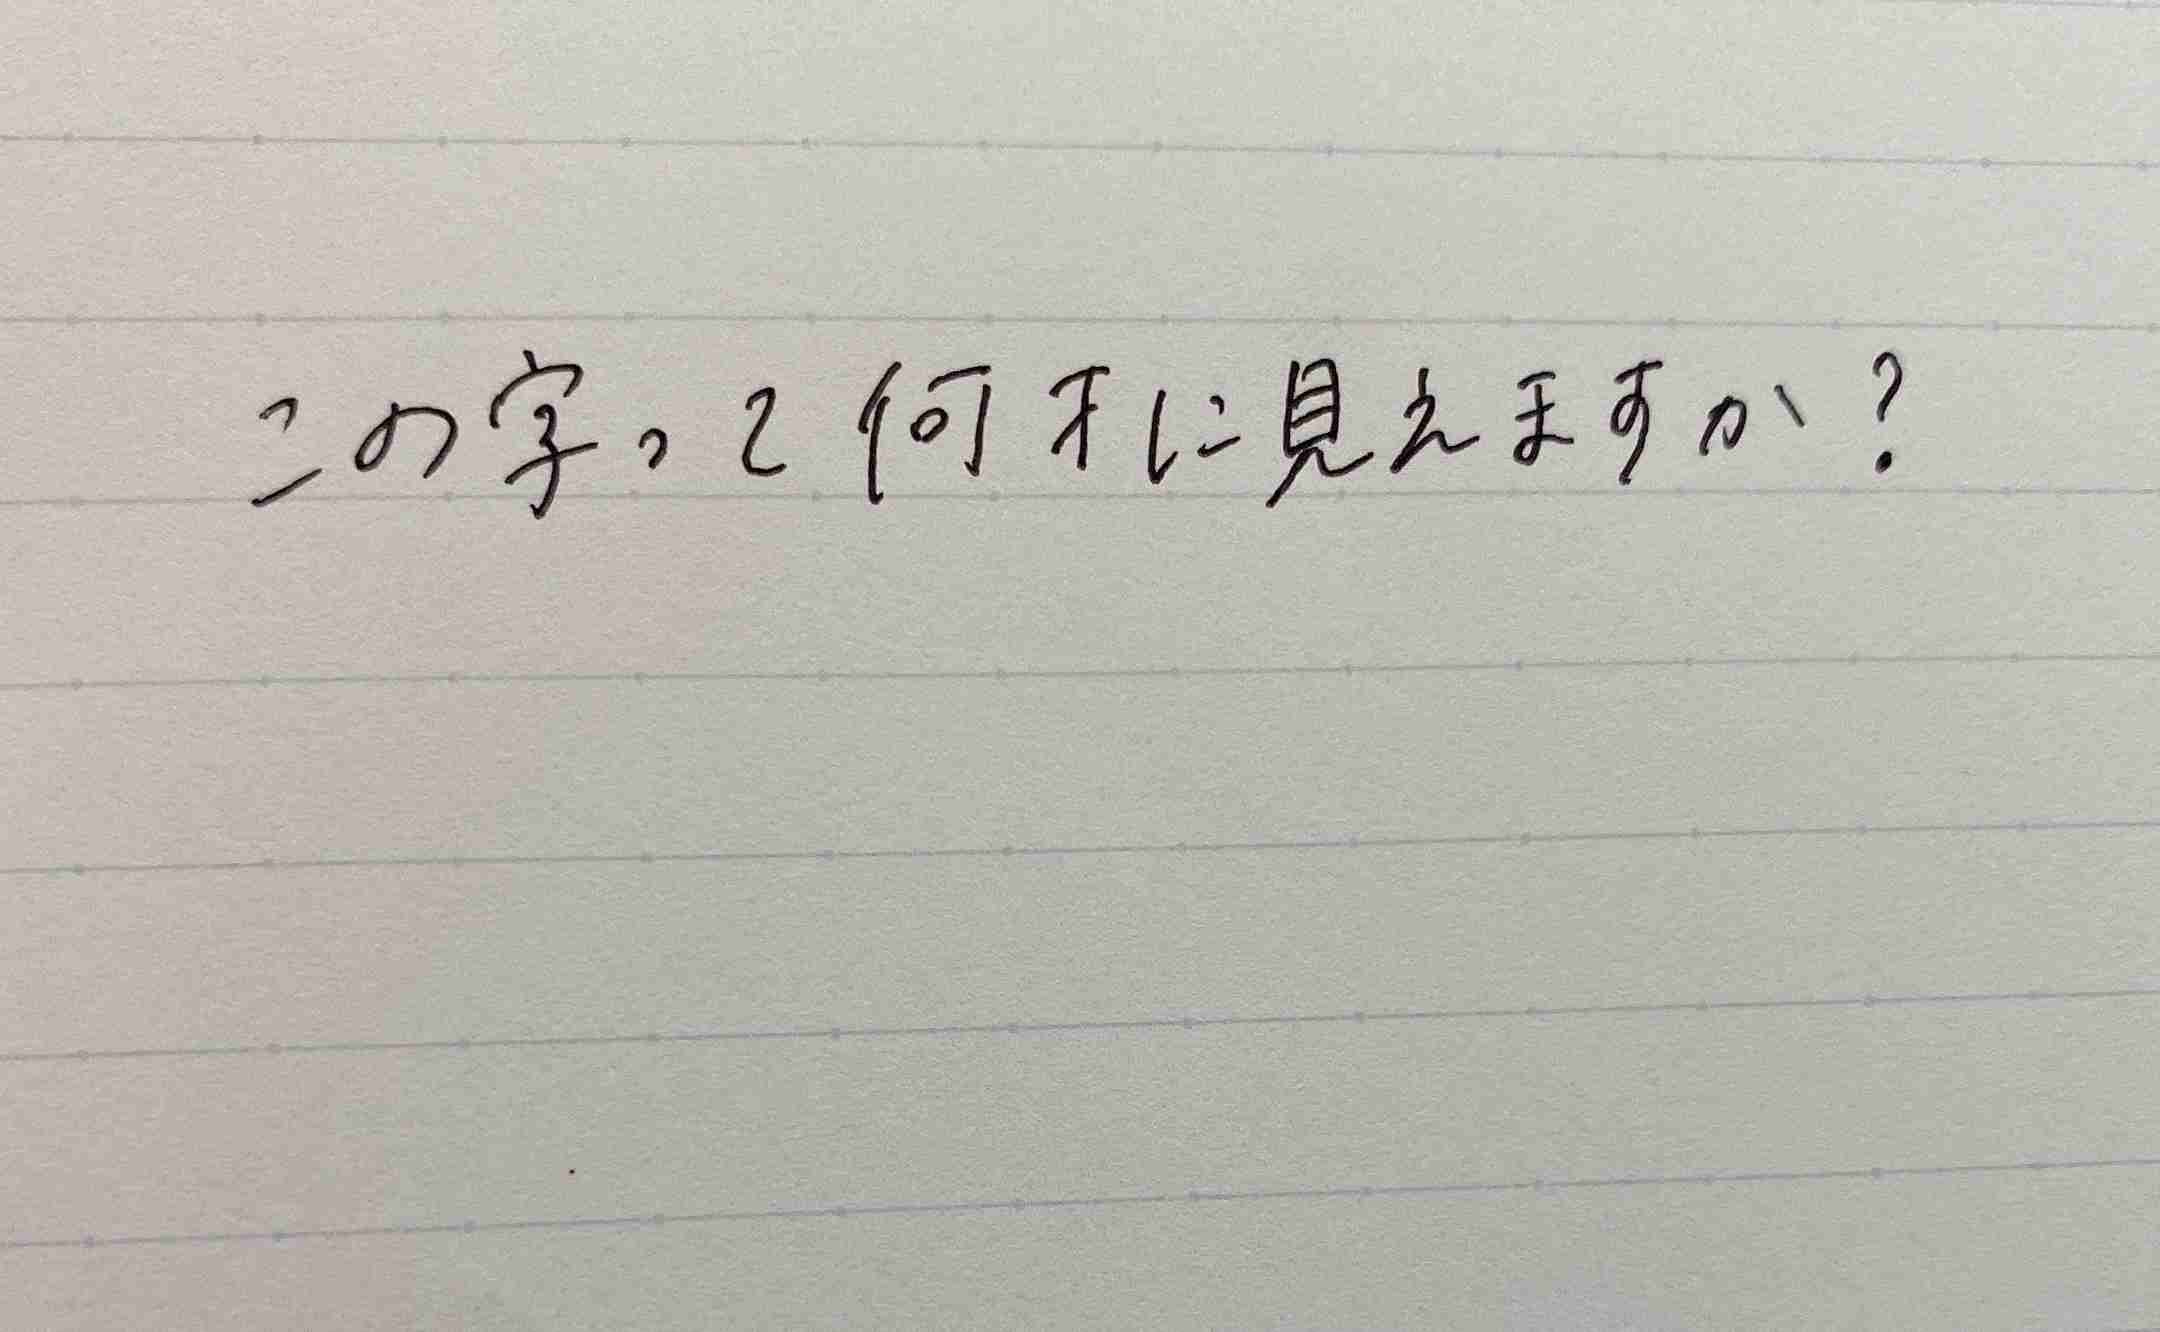 この字って何才に見えますか?